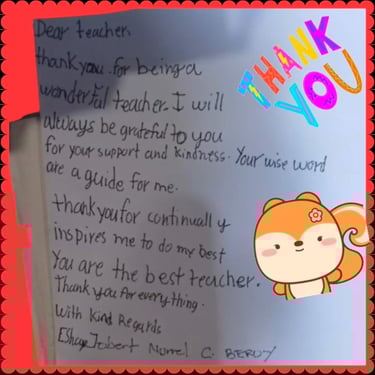 Dear teacher,
thank you for being a
wonderful teacher. I will
always be grateful to you
for your support and kindness. Your wise word
are a guide for me.
thank you for continually
inspires me to do my best
You are the best teacher.
Thank you for everything.
With Kind Regards
C.
THANK
YOU